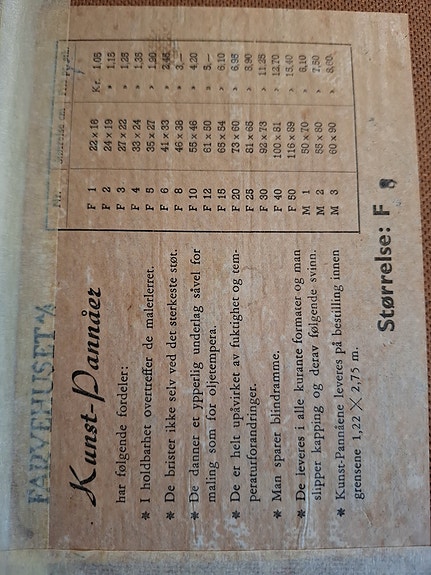 FARVEHUSET A/S
Kunst-Pannåer
har følgende fordeler:
* I holdbarhet overtreffer de malerlerret.
* De brister ikke selv ved det sterkeste støt.
* De danner et ypperlig underlag såvel for
maling som for oljetempera.
* De er helt upåvirket av fuktighet og tem-
peraturforandringer.
* Man sparer blindramme.
* De leveres i alle kurante formater og man
slipper kapping og derav følgende svinn.
* Kunst-Pannåene leveres på bestilling innen
grensene 1,22 × 2,75 m.
F 1 22 x 16 Kr. 1.05
F 2 24 x 19 » 1.15
F 3 27 x 22 » 1.25
F 4 33 x 24 » 1.35
F 5 35 x 27 » 1.90
F 6 41 x 33 » 2.45
F 8 46 x 38 » 3,—
F 10 55 x 46 » 4.20
F 12 61 x 50 » 5,—
F 15 65 x 54 » 6.10
F 20 73 x 60 » 6.95
F 25 81 x 65 » 8.90
F 30 92 x 73 » 11.25
F 40 100 x 81 » 12.70
F 50 116 x 89 » 15.40
M 1 50 x 70 » 6.10
M 2 55 x 80 » 7.50
M 3 60 x 90 » 8.60
Størrelse: F